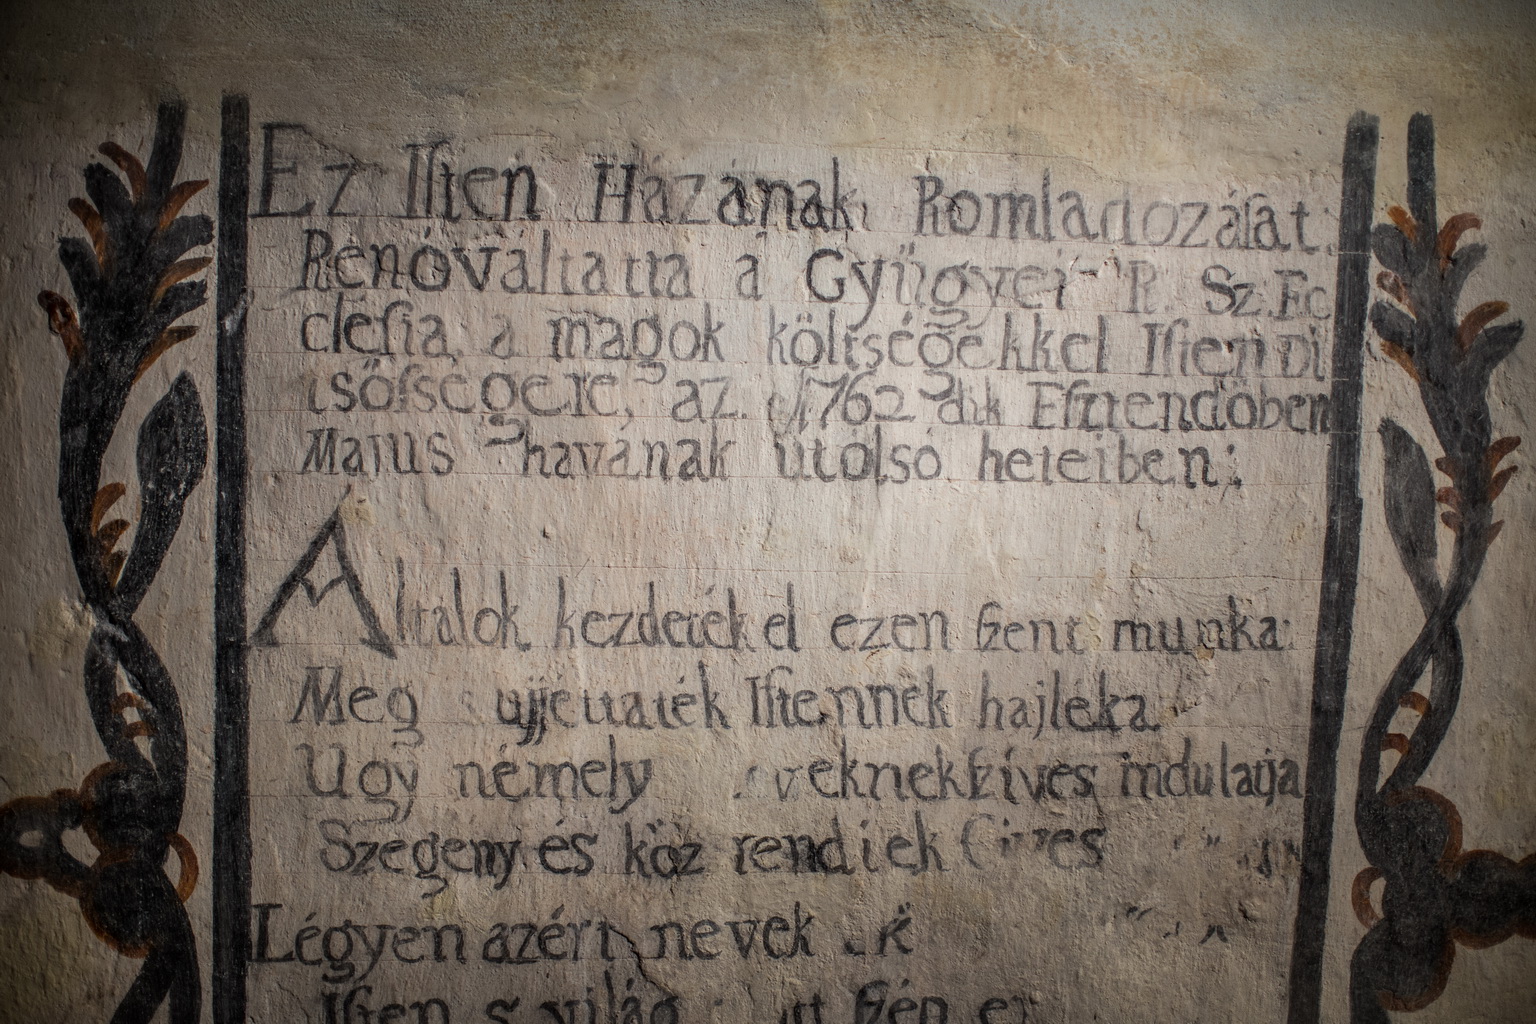 Ez Iſten Házának Romladozáſat
Renóváltatta á Gyügyei R. Sz. Ec
cleſia, a magok költségékkel Iſten Di
tsőſsegere, az 1762 dik Eſztendőben
Majus havának utólsó heteiben;
Altalok kezdeték el ezen ſzent munka:
Meg ujjéttaték Iſtennek hajléka
Ugy némely veknek ſzíves indulatja
Szegény és köz rendiek
Légyen azért nevek
Iſten s világ ſzép